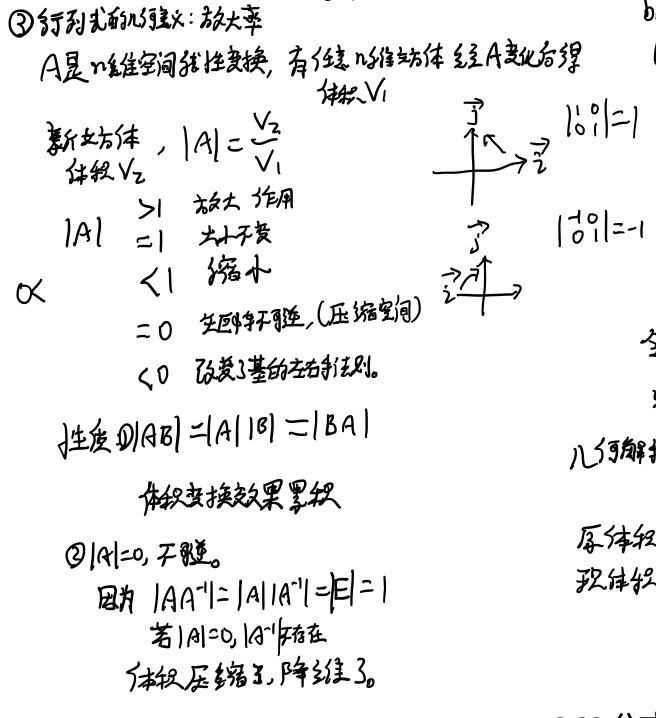 ③行列式的几何意义:放大率
A是n维空间线性变换,有任意n维立方体经A变化后得
体积V₁
新立方体
体积V₂ , |A| = V₂/V₁
j
i
|1 0
0 1| = 1
|A| >1 放大作用
=1 大小不变
0< <1 缩小
=0 矩阵不可逆,(压缩空间)
<0 改变了基的左右手法则。
j
i
|-1 0
0 1| = -1
性质①|AB| = |A||B| = |BA|
体积变换效果累积
②|A|=0,不可逆。
因为 |AA⁻¹| = |A||A⁻¹| = |E| = 1
若|A|=0,|A⁻¹|不存在
体积压缩了,降维了。
几何解
原体积
积体积